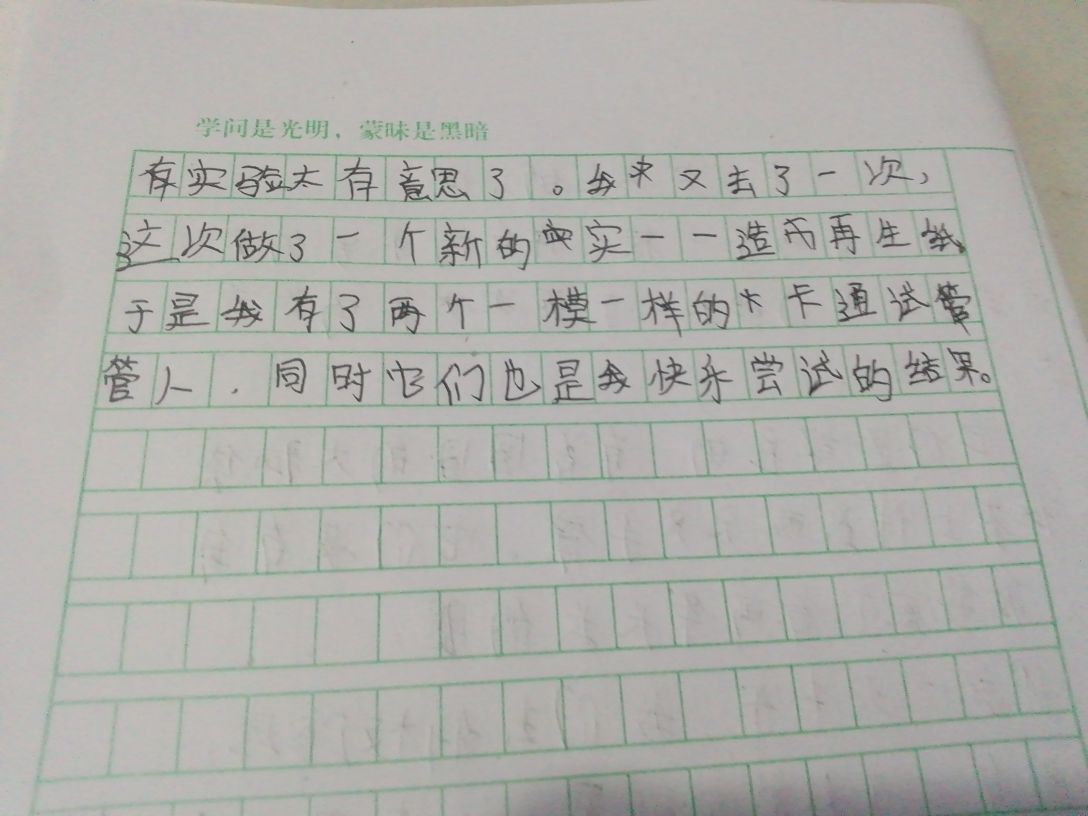 学问是光明，蒙昧是黑暗
存实验太有意思了。我又去了一次，
这次做了一个新的实一一造再生纸
于是我有了两个一模一样的卡通试管
管人．同时它们也是我快乐尝试的结果。